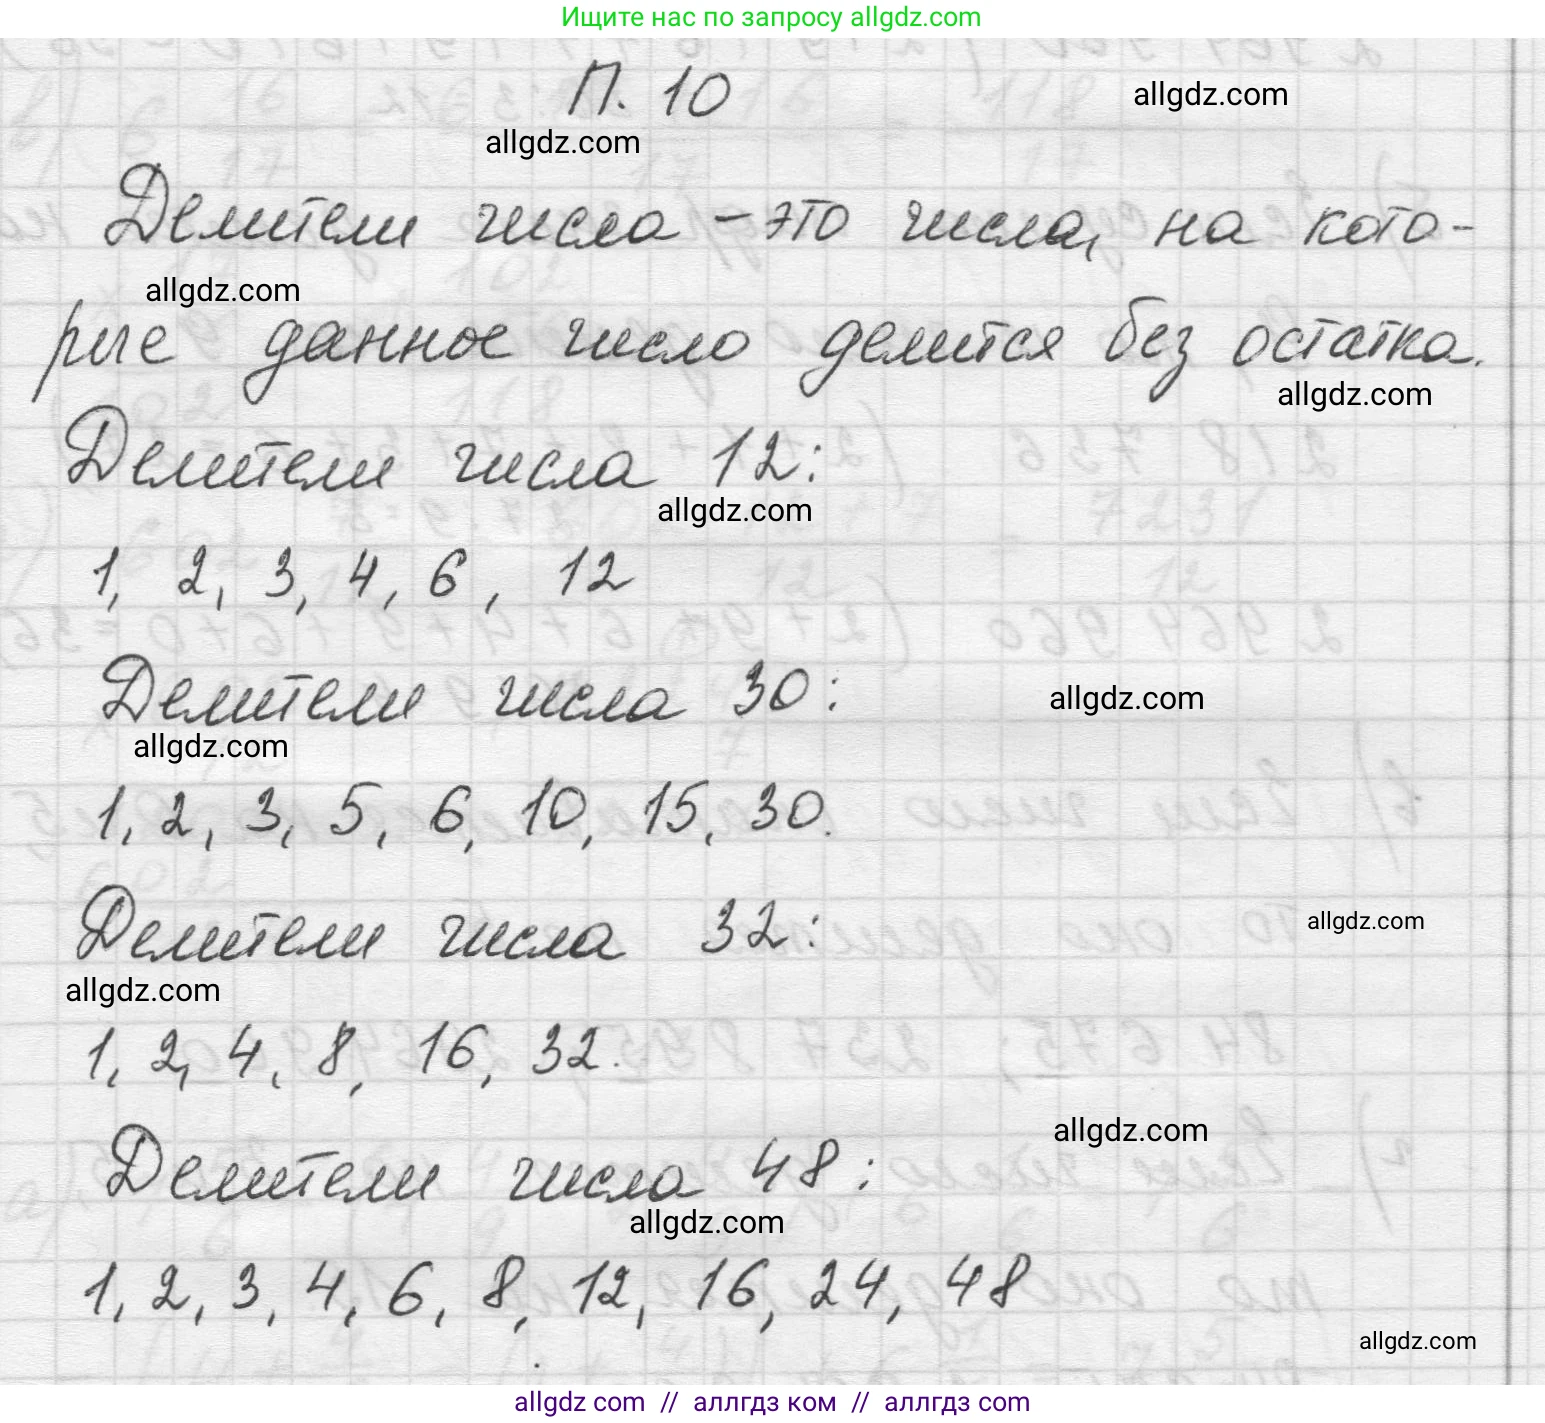 Ищите нас по запросу allgdz.com
П. 10
allgdz.com
allgdz.com
Делители числа - это числа, на кото-
allgdz.com
рые данное число делится без остатка.
allgdz.com
Делители числа 12:
allgdz.com
1, 2, 3, 4, 6, 12
Делители числа 30:
allgdz.com
allgdz.com
1, 2, 3, 5, 6, 10, 15, 30.
Делители числа 32:
allgdz.com
allgdz.com
1, 2, 4, 8, 16, 32.
allgdz.com
Делители числа 48:
allgdz.com
1, 2, 3, 4, 6, 8, 12, 16, 24, 48
allgdz.com
allgdz com // аллгдз ком // аллгдз com